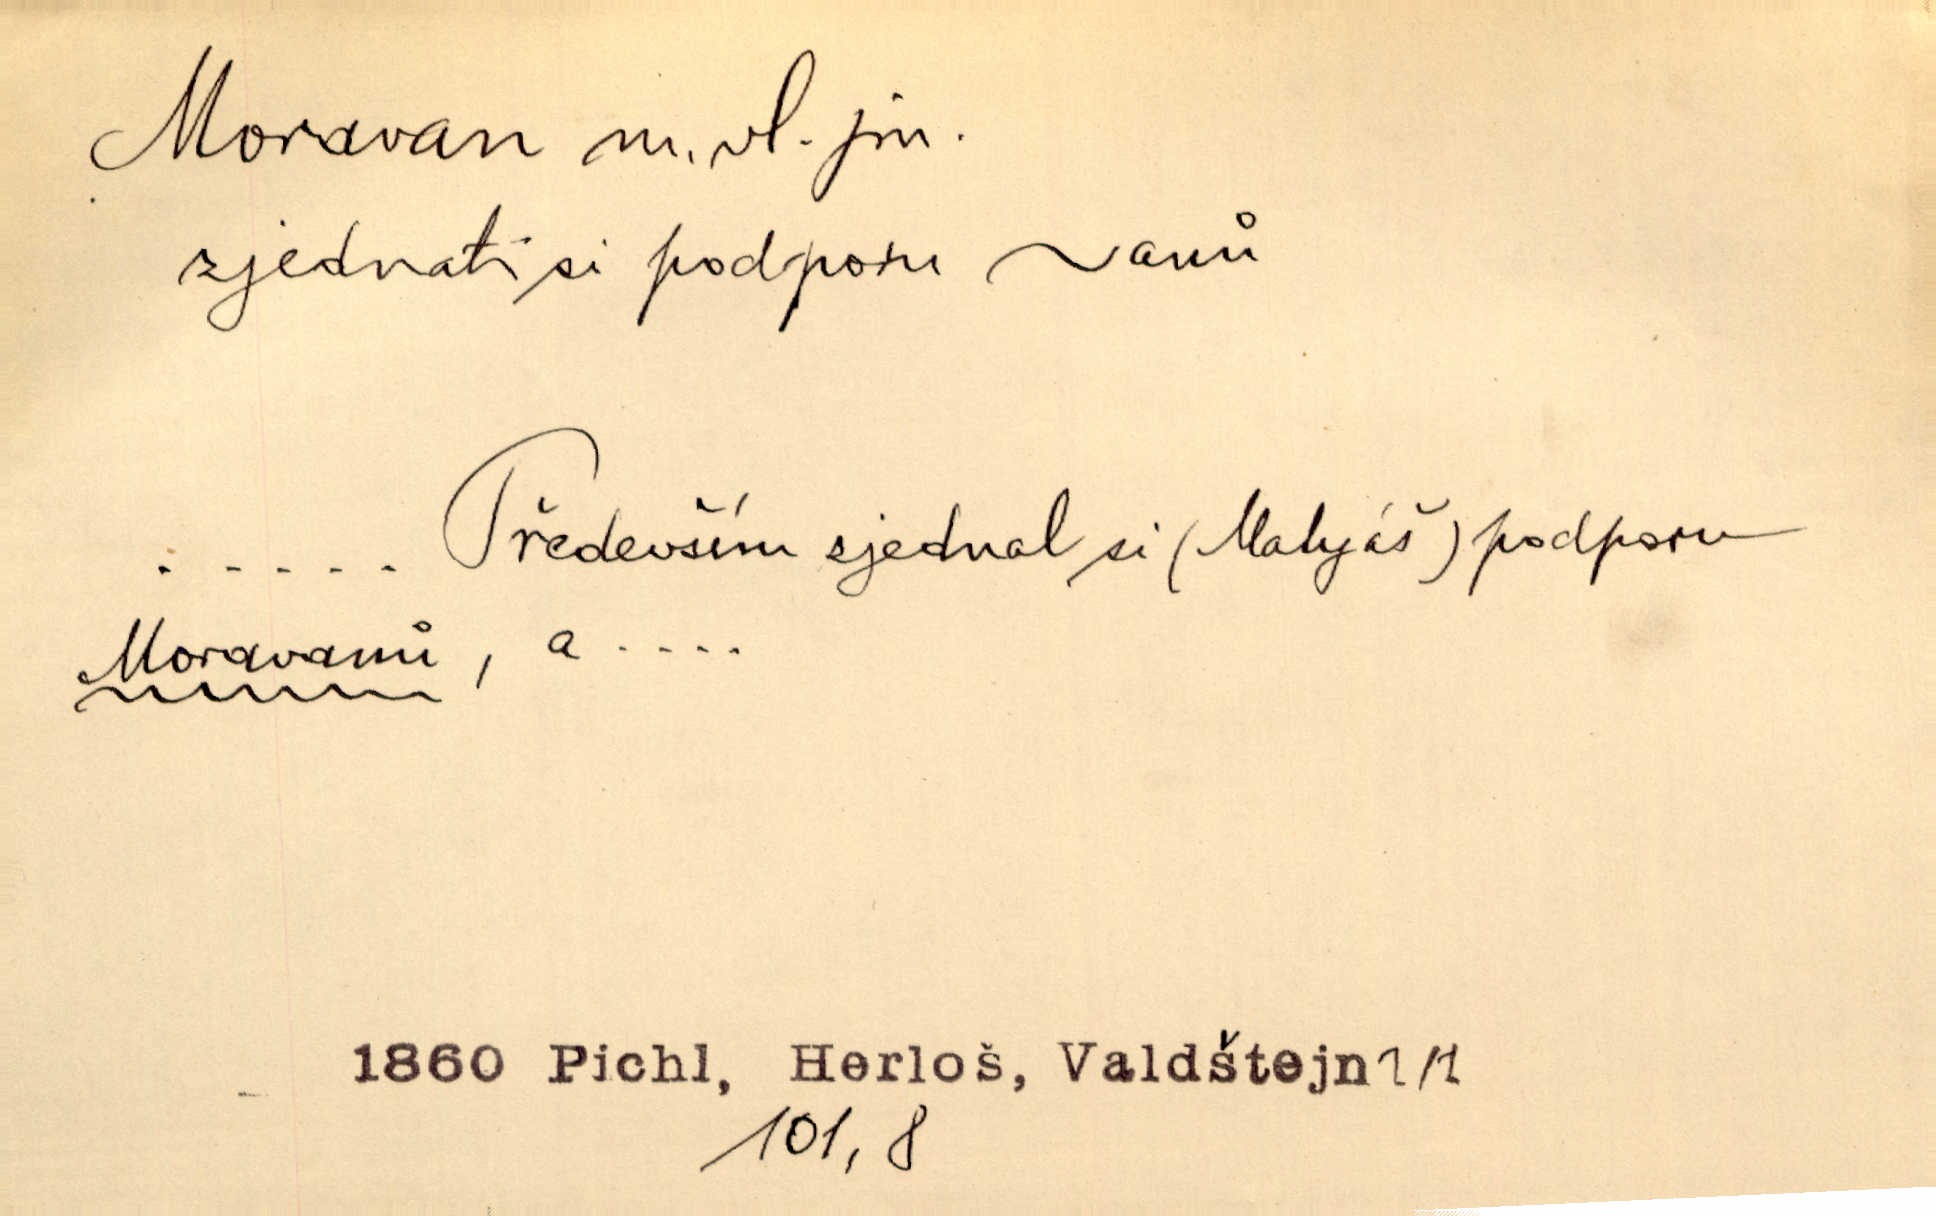 Moravan m. vl. jm.
zjednati si podporu ~vanů
. - - - - Především zjednal si (Matyáš) podporu
Moravanů, a . . . .
1860 Pichl, Herloš, Valdštejn 1/1
101, 8